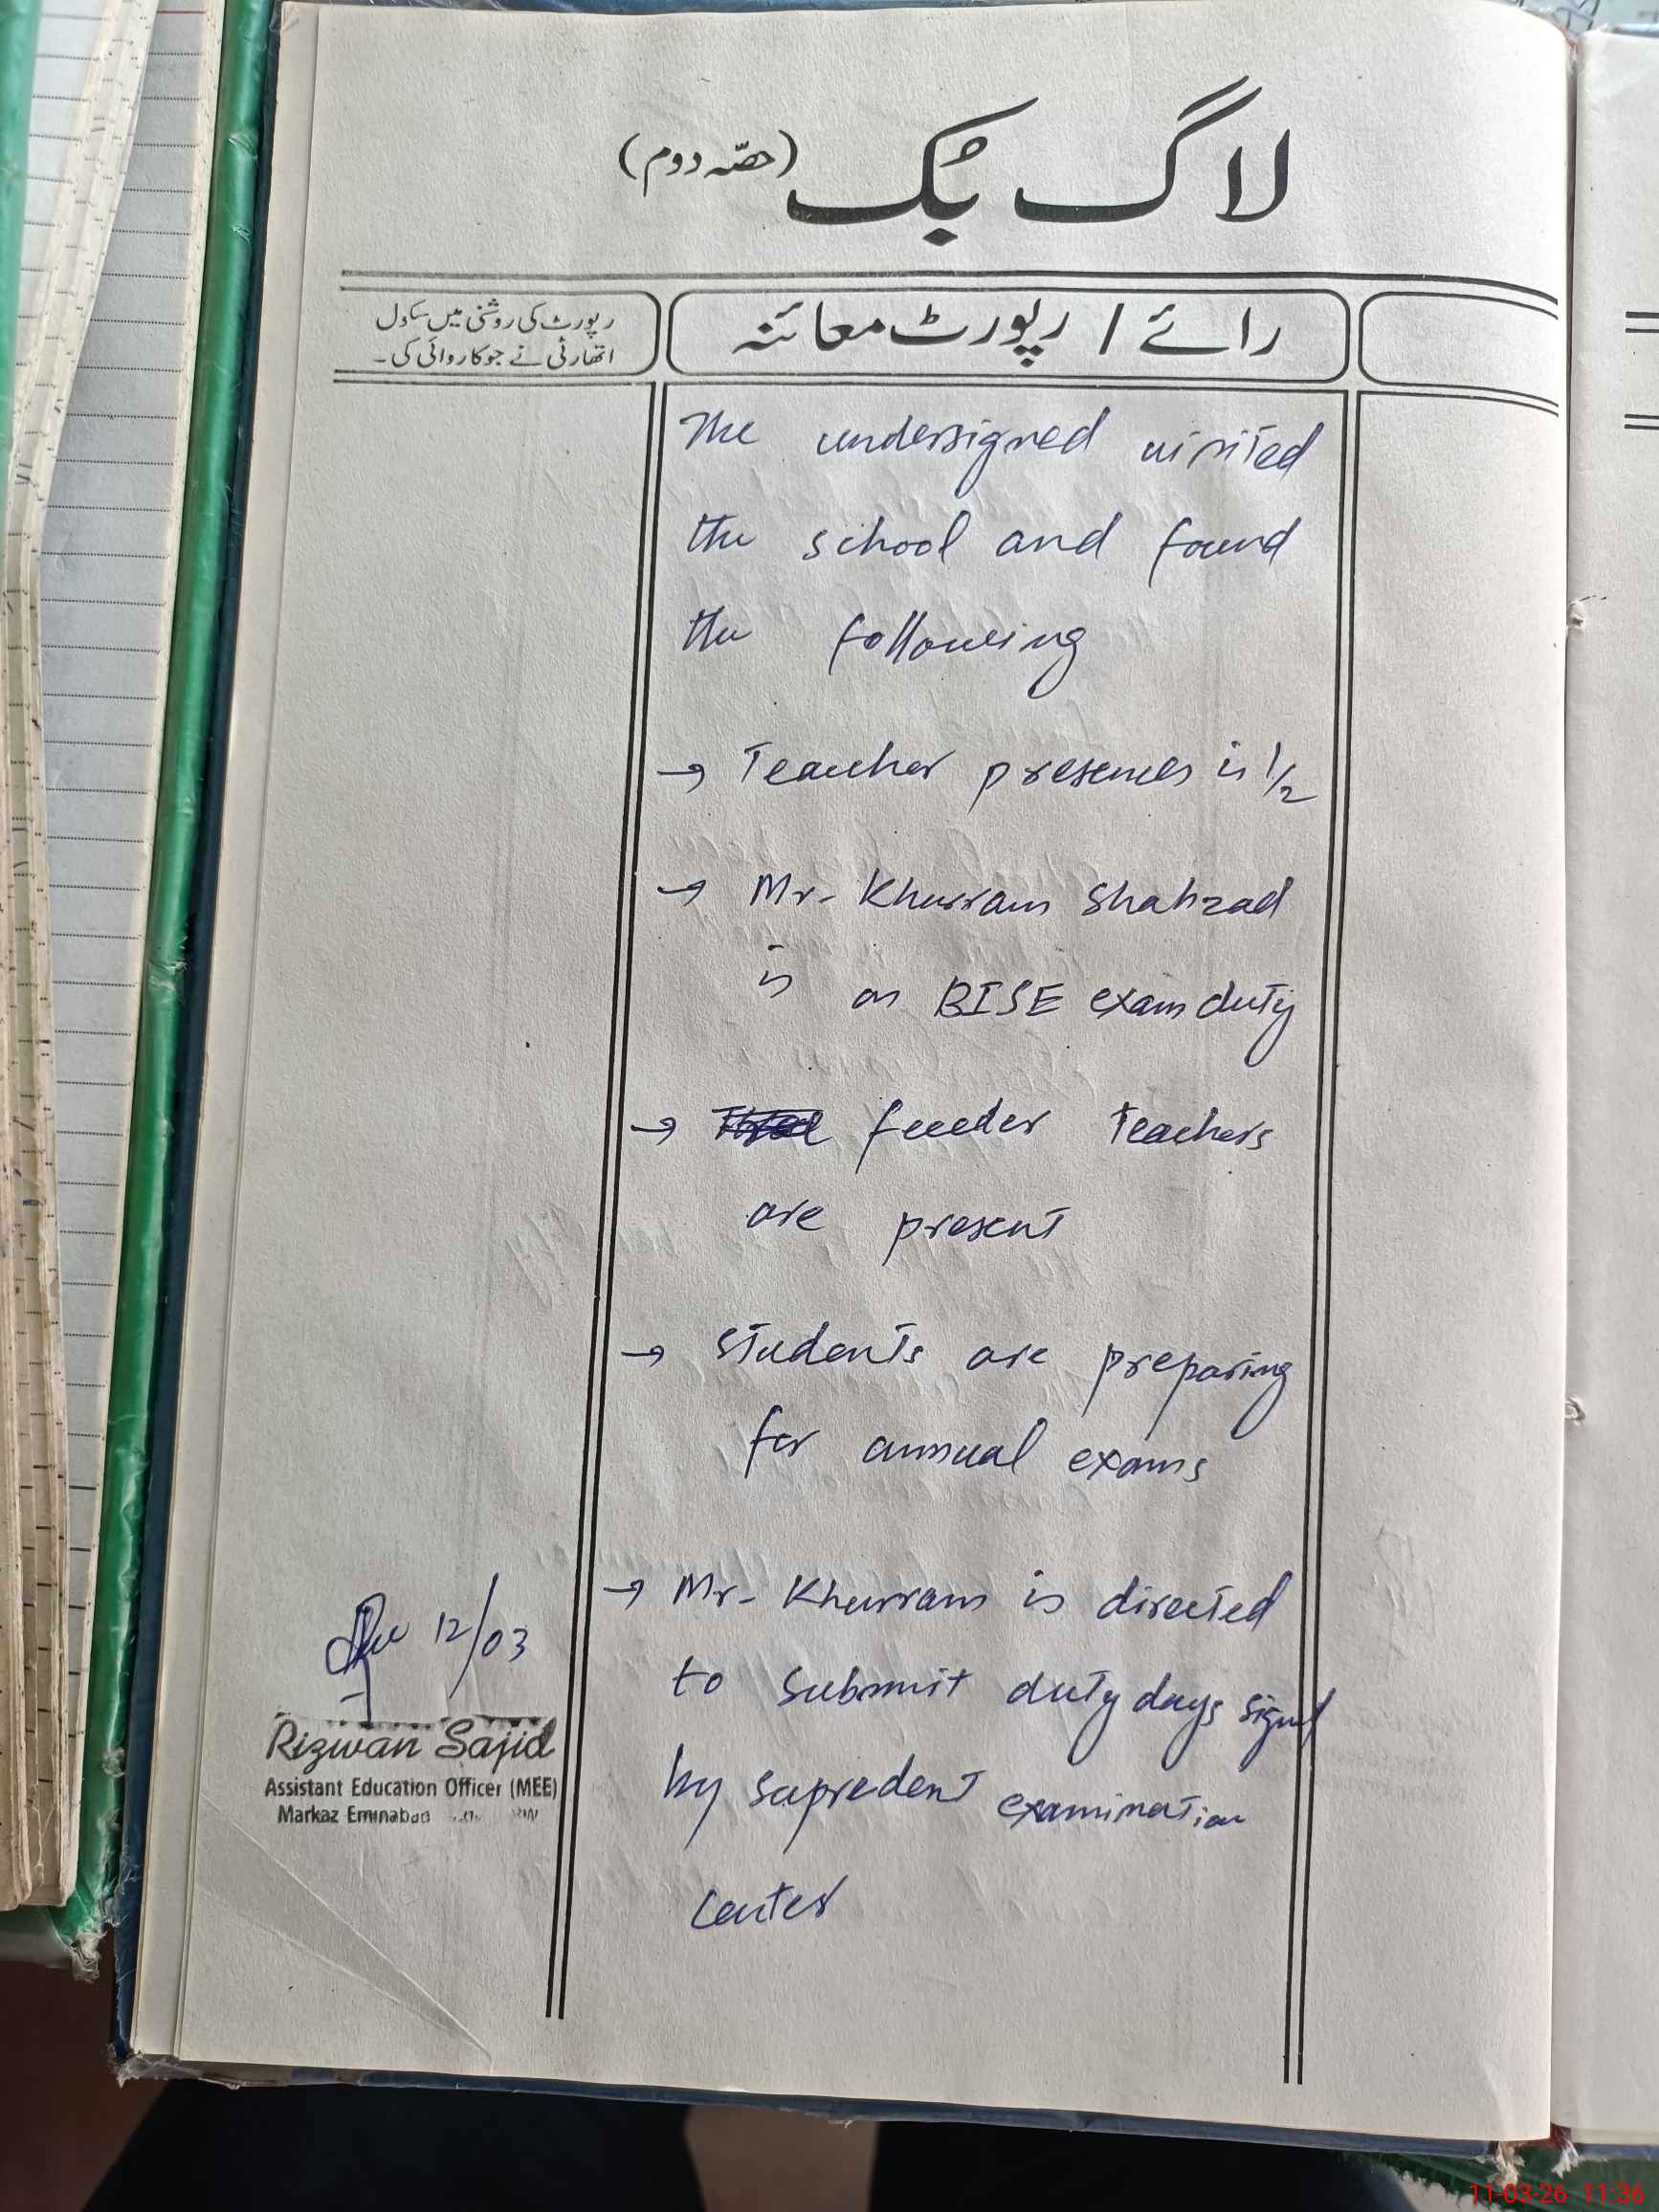 لاگ بک (حصّہ دوم)
رائے / رپورٹ معائنہ
رپورٹ کی روشنی میں سکول
اتھارٹی نے جو کاروائی کی۔
The undersigned visited
the school and found
the following
→ Teacher presences is 1/2
→ Mr. Khurram Shahzad
is on BISE exam duty
→ feeder teachers
are present
→ students are preparing
for annual exams
→ Mr. Khurram is directed
to submit duty days signed
by supredent examination
center
12/03
Rizwan Sajid
Assistant Education Officer (MEE)
Markaz Eminabad
11-03-26 11:36